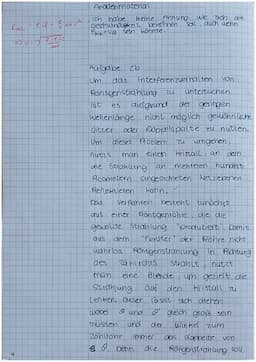 Anodenmaterial.
Ich habe keine Ahnung wie sich die
Geschwindigkeit berechnen soll, auch wenn
sein könnte.
Aufgabe 2b
Um das Interferenzverhalten von
Röntgenstrahlung zu untersuchen
ist es aufgrund der geringen
Wellenlänge nicht möglich gewöhnliche
Gitter oder Doppelspalte zu nutzen.
Um dieses Problem zu umgehen,
nutzt man einen Kristall, an dem
die Strahlung an mehreren hundert
angeordneten Netzebenen
reflektieren kann.
Das Verfahren besteht zunächst
aus einer Röntgenröhre, die die
gewollte Strahlung produziert. Damit
aus dem "Fenster" der Röhre nicht
wahllos Röntgenstrahlung in Richtung
des Zählrohrs strahlt, nutzt
man eine Blende, um gezielt die
Strahlung auf den Kristall zu
lenken. Dieser lässt sich drehen
wobei ϑ und ϑ' gleich groß sein
müssen und der Winkel zum
Zählrohr immer das doppelte von
ϑ, denn die Röntgenstrahlung soll